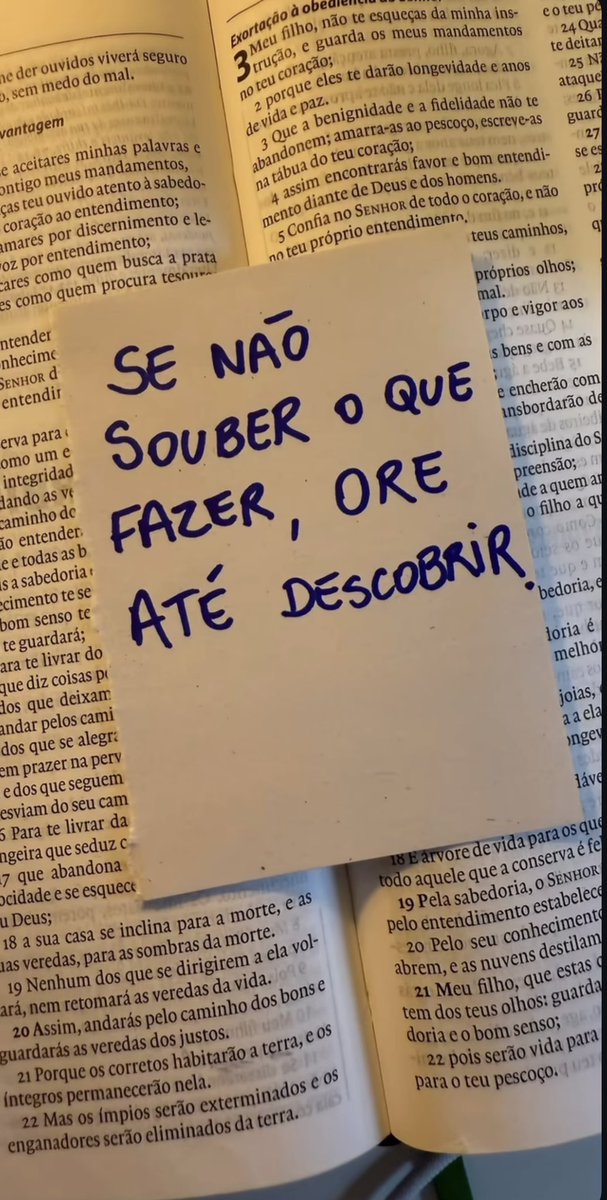 me der ouvidos viverá seguro
o, sem medo do mal.
vantagem
e aceitares minhas palavras e
ontigo meus mandamentos,
ças teu ouvido atento à sabedo-
coração ao entendimento;
amares por discernimento e le-
voz por entendimento;
cares como quem busca a prata
es como quem procura
entender
SENHOR d
serva para
como um e
integridad
dando as ve
caminho do
ão entender
e e todas as b
a sabedoria
ecimento te se
bom senso te
te guardará;
ara te livrar do
que diz coisas
dos que deixam
andar pelos cami
dos que se alegra
em prazer na perv
e dos que seguem
esviam do seu cam
6 Para te livrar da
ngeira que seduz c
17 que abandona
ocidade e se esquece
u Deus;
18 a sua casa se inclina para a morte, e as
uas veredas, para as sombras da morte.
19 Nenhum dos que se dirigirem a ela vol-
ará, nem retomará as veredas da vida.
20 Assim, andarás pelo caminho dos bons e
guardarás as veredas dos justos.
21 Porque os corretos habitarão a terra, e os
íntegros permanecerão nela.
22 Mas os ímpios serão exterminados e os
enganadores serão eliminados da terra.
SE NÃO
SOUBER O QUE
FAZER, ORE
ATÉ DESCOBRIR.
Exortação à
3 Meu filho, não te esqueças da minha ins-
trução, e guarda os meus mandamentos
no teu coração;
2 porque eles te darão longevidade e anos
de vida e paz.
3 Que a benignidade e a fidelidade não te
abandonem; amarra-as ao pescoço, escreve-as
na tábua do teu coração;
4 assim encontrarás favor e bom entendi-
mento diante de Deus e dos homens.
5 Confia no SENHOR de todo o coração, e não
no teu próprio entendimento,
teus caminhos,
próprios olhos;
mal.
rpo e vigor aos
s bens e com as
e encherão com
nsbordarão de
disciplina do S
preensão;
de a quem a
o filho a q
bedoria, e
doria é
melhor
joias,
a a ela
ongev
18 É árvore de vida para os que
todo aquele que a conserva é fe
19 Pela sabedoria, o SENHOR
pelo entendimento estabelece
20 Pelo seu conhecimento
abrem, e as nuvens destilam
21 Meu filho, que estas c
tem dos teus olhos: guarda
doria e o bom senso;
22 pois serão vida para
para o teu pescoço.
e o teu p
24 Qua
te deitar
25 Nã
ataque
26
guard
27
se es